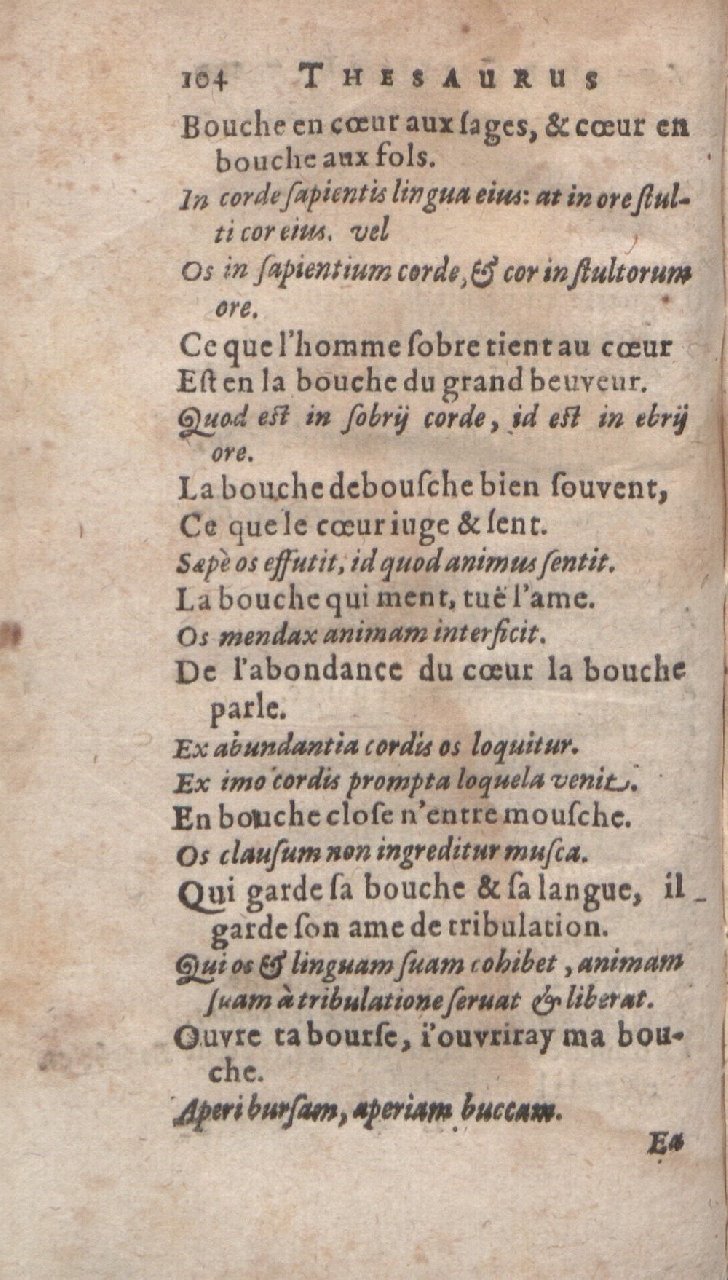 104 THESAURUS
Bouche en cœur aux ſages, & cœur en
bouche aux fols.
In corde ſapientis lingua eius: at in ore ſtul-
ti cor eius. vel
Os in ſapientium corde, & cor in ſtultorum
ore.
Ce que l'homme ſobre tient au cœur
Eſt en la bouche du grand beuveur.
Quod eſt in ſobrij corde, id eſt in ebrij
ore.
La bouche debouſche bien ſouvent,
Ce que le cœur iuge & ſent.
Sæpè os effutit, id quod animus ſentit.
La bouche qui ment, tuë l'ame.
Os mendax animam interficit.
De l'abondance du cœur la bouche
parle.
Ex abundantia cordis os loquitur.
Ex imo cordis prompta loquela venit.
En bouche cloſe n'entre mouſche.
Os clauſum non ingreditur muſca.
Qui garde ſa bouche & ſa langue, il
garde ſon ame de tribulation.
Qui os & linguam ſuam cohibet, animam
ſuam à tribulatione ſeruat & liberat.
Ouvre ta bourſe, i'ouvriray ma bou-
che.
Aperi burſam, aperiam buccam.
Ea